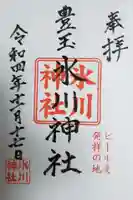 奉拝
ビール麦
発祥の地
豊玉氷川神社
氷川
神社
令和四年十二月十七日
氷川
神社